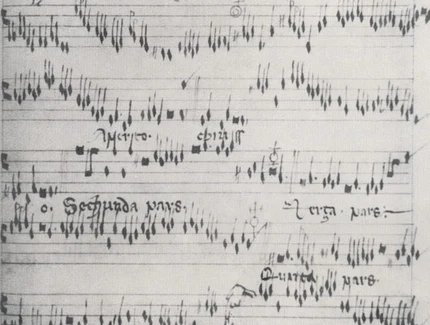 Aperto. chiuss
o. Sechunda pars.
Terza. pars:
Quarta pars